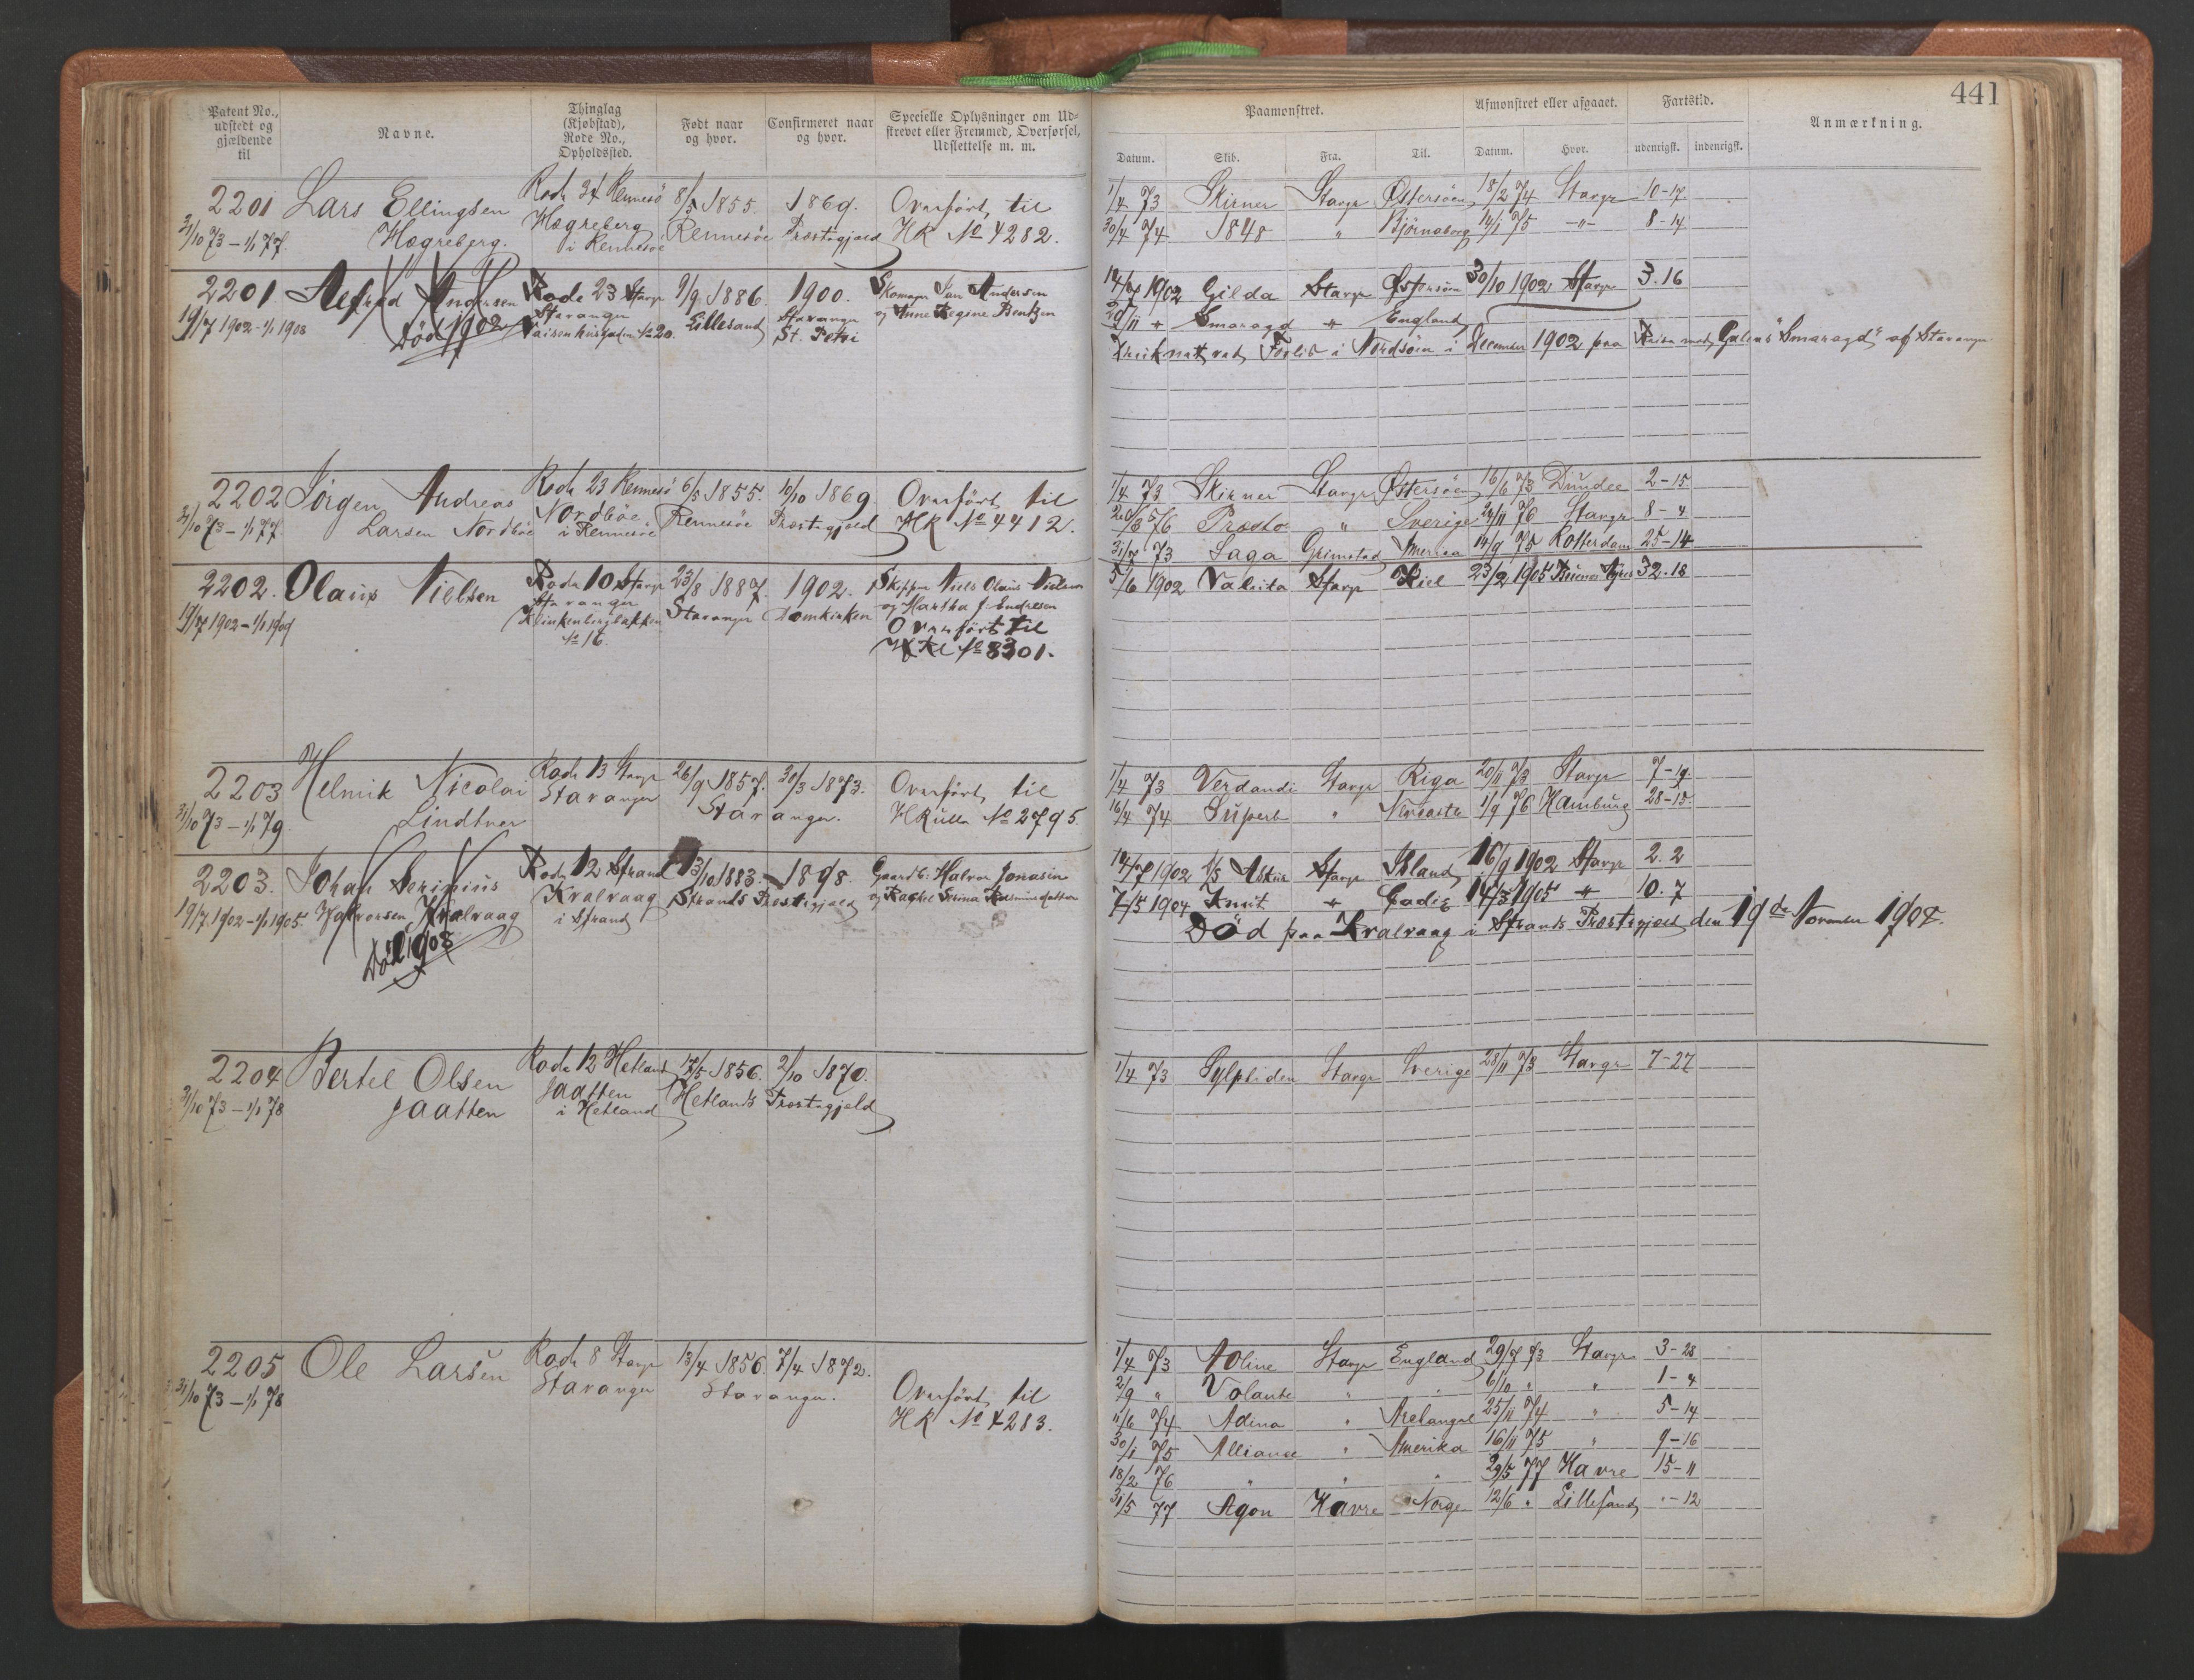 441
Patent No., udstedt og gjældende til
Navne.
Thinglag (Kjøbstad), Rode No., Opholdssted.
Født naar og hvor.
Confirmeret naar og hvor.
Specielle Oplysninger om Udstrevet eller Fremmed, Overførsel, Udslettelse m. m.
Paamonstret.
Datum. Skib. Fra. Til.
Afmonstret eller afgaaet.
Datum. Hvor.
Fartstid.
udenrigsk. indenrigsk.
Anmærkning.
2201 Lars Ellingsen Rode 34 Rennesö 8/5 1855. 1869. Overført til
31/10 73 – 1/1 77. Hægreberg. Hægreberg i Rennesöe Rennesöe Præstegjæld HR No 4282.
1/4 73 Skirner Stavgr Østersöen 18/2 74 Stavgr 10-17
30/4 74 1848 " Bjørneborg 14/1 75 -"- 8-14
2201 Alfred Andersen Rode 23 Stavgr 9/9 1886. 1900. Skomager Jan Andersen
19/7 1902 – 1/1 1908 Død 1902 Stavanger Vaisenhusgaden No 20. Lillesand Stavanger St. Petri og Anne Regine Bentzen
14/7 1902 Gilda Stavgr Østersøen 30/10 1902 Stavgr 3.16
/11 " Smaragd " England
ved Forlis i Nordsøen i December 1902 paa Reisen med Galeas "Smaragd" af Stavanger
2202 Jörgen Andreas Rode 23 Rennesö 6/5 1855. 10/10 1869. Overført til
31/10 73 – 1/1 77. Larsen Nordböe Nordböe i Rennesöe Rennesöe Præstegjæld HR No 4412.
1/4 73 Skirner Stavgr Østersöen 16/6 73 Dundee 2-15
Præsto " Sverige 24/11 76 Stavgr 8-4
31/7 73 Saga Grimstad America 14/9 75 Rotterdam 25-14
2202. Olaus Nielsen Rode 10 Stavgr 23/8 1887. 1902. Skipper Niels Olaus Nielsen
19/7 1902 – 1/1 1909 Stavanger Klinkenbergbakken No 16. Stavanger Domkirken og Martha J. Endresen
Overført til
HR No 8301.
5/6 1902 Valkita Stavgr Kiel 23/2 1905 Buenos Ayres 32.18
2203 Helmik Nicolai Rode 13 Stavgr 26/9 1857. 30/3 1873. Overført til
31/10 73 – 1/1 79 Lindtner Stavanger Stavanger. HRulla No 2795
1/4 73 Verdandi Stavgr Riga 20/11 73 Stavgr 7-19
16/4 74 Superb " 1/9 76 Hamburg 28-15
2203. Johan Serinius Rode 12 Strand 13/10 1883. 1898. Gaardb. Halvor Jonassen
19/7 1902 – 1/1 1905. Halvorsen Kvalvaag Kvalvaag i Strand Strands Præstegjæld og Rachel Serina Rasmusdatter
Død 1908
14/7 1902 D/S Askur Stavgr Island 16/9 1902 Stavgr 2.2
7/5 1904 Knut " Cadiz 14/3 1905 " 10.7
Død paa Kvalvaag i Strands Præstegjæld den 19de November 1908.
2204 Bertel Olsen Rode 12 Hetland 17/5 1856. 2/10 1870.
31/10 73 – 1/1 78 Jaatten Jaatten i Hetland Hetlands Præstegjæld
1/4 73 Sylphiden Stavgr Sverige 28/11 73 Stavgr 7-27
2205 Ole Larsen Rode 8 Stavgr 13/4 1856. 7/4 1872.
31/10 73 – 1/1 78 Stavanger Stavanger. Overført til
HR No 4283.
1/4 73 Aline Stavgr England 29/7 73 Stavgr 3-28
2/9 " Volante " " 6/10 " " 1-4
11/6 74 Adina " Archangel 25/11 74 " 5-14
30/1 75 Alliance " Amerika 16/11 75 " 9-16
18/2 76 " " " 29/5 77 Havre 15-11
31/5 77 Agon Havre Norge 12/6 " Lillesand "-12